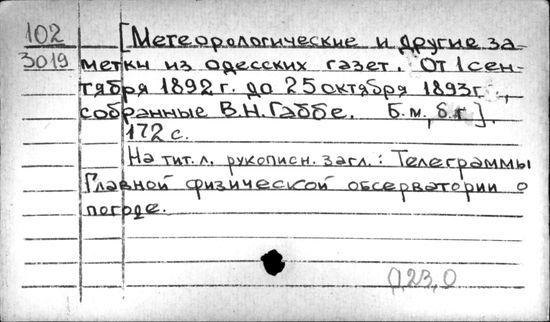 102
3019
[Метеорологические и другие за-
метки из одесских газет. От 1 сен-
тября 1892 г. до 25 октября 1893 г.,
собранные В.Н. Габбе. Б.м., б.г.].
172 с.
На тит. л. рукописн. загл.: Телеграммы
Главной физической обсерватории о
погоде.